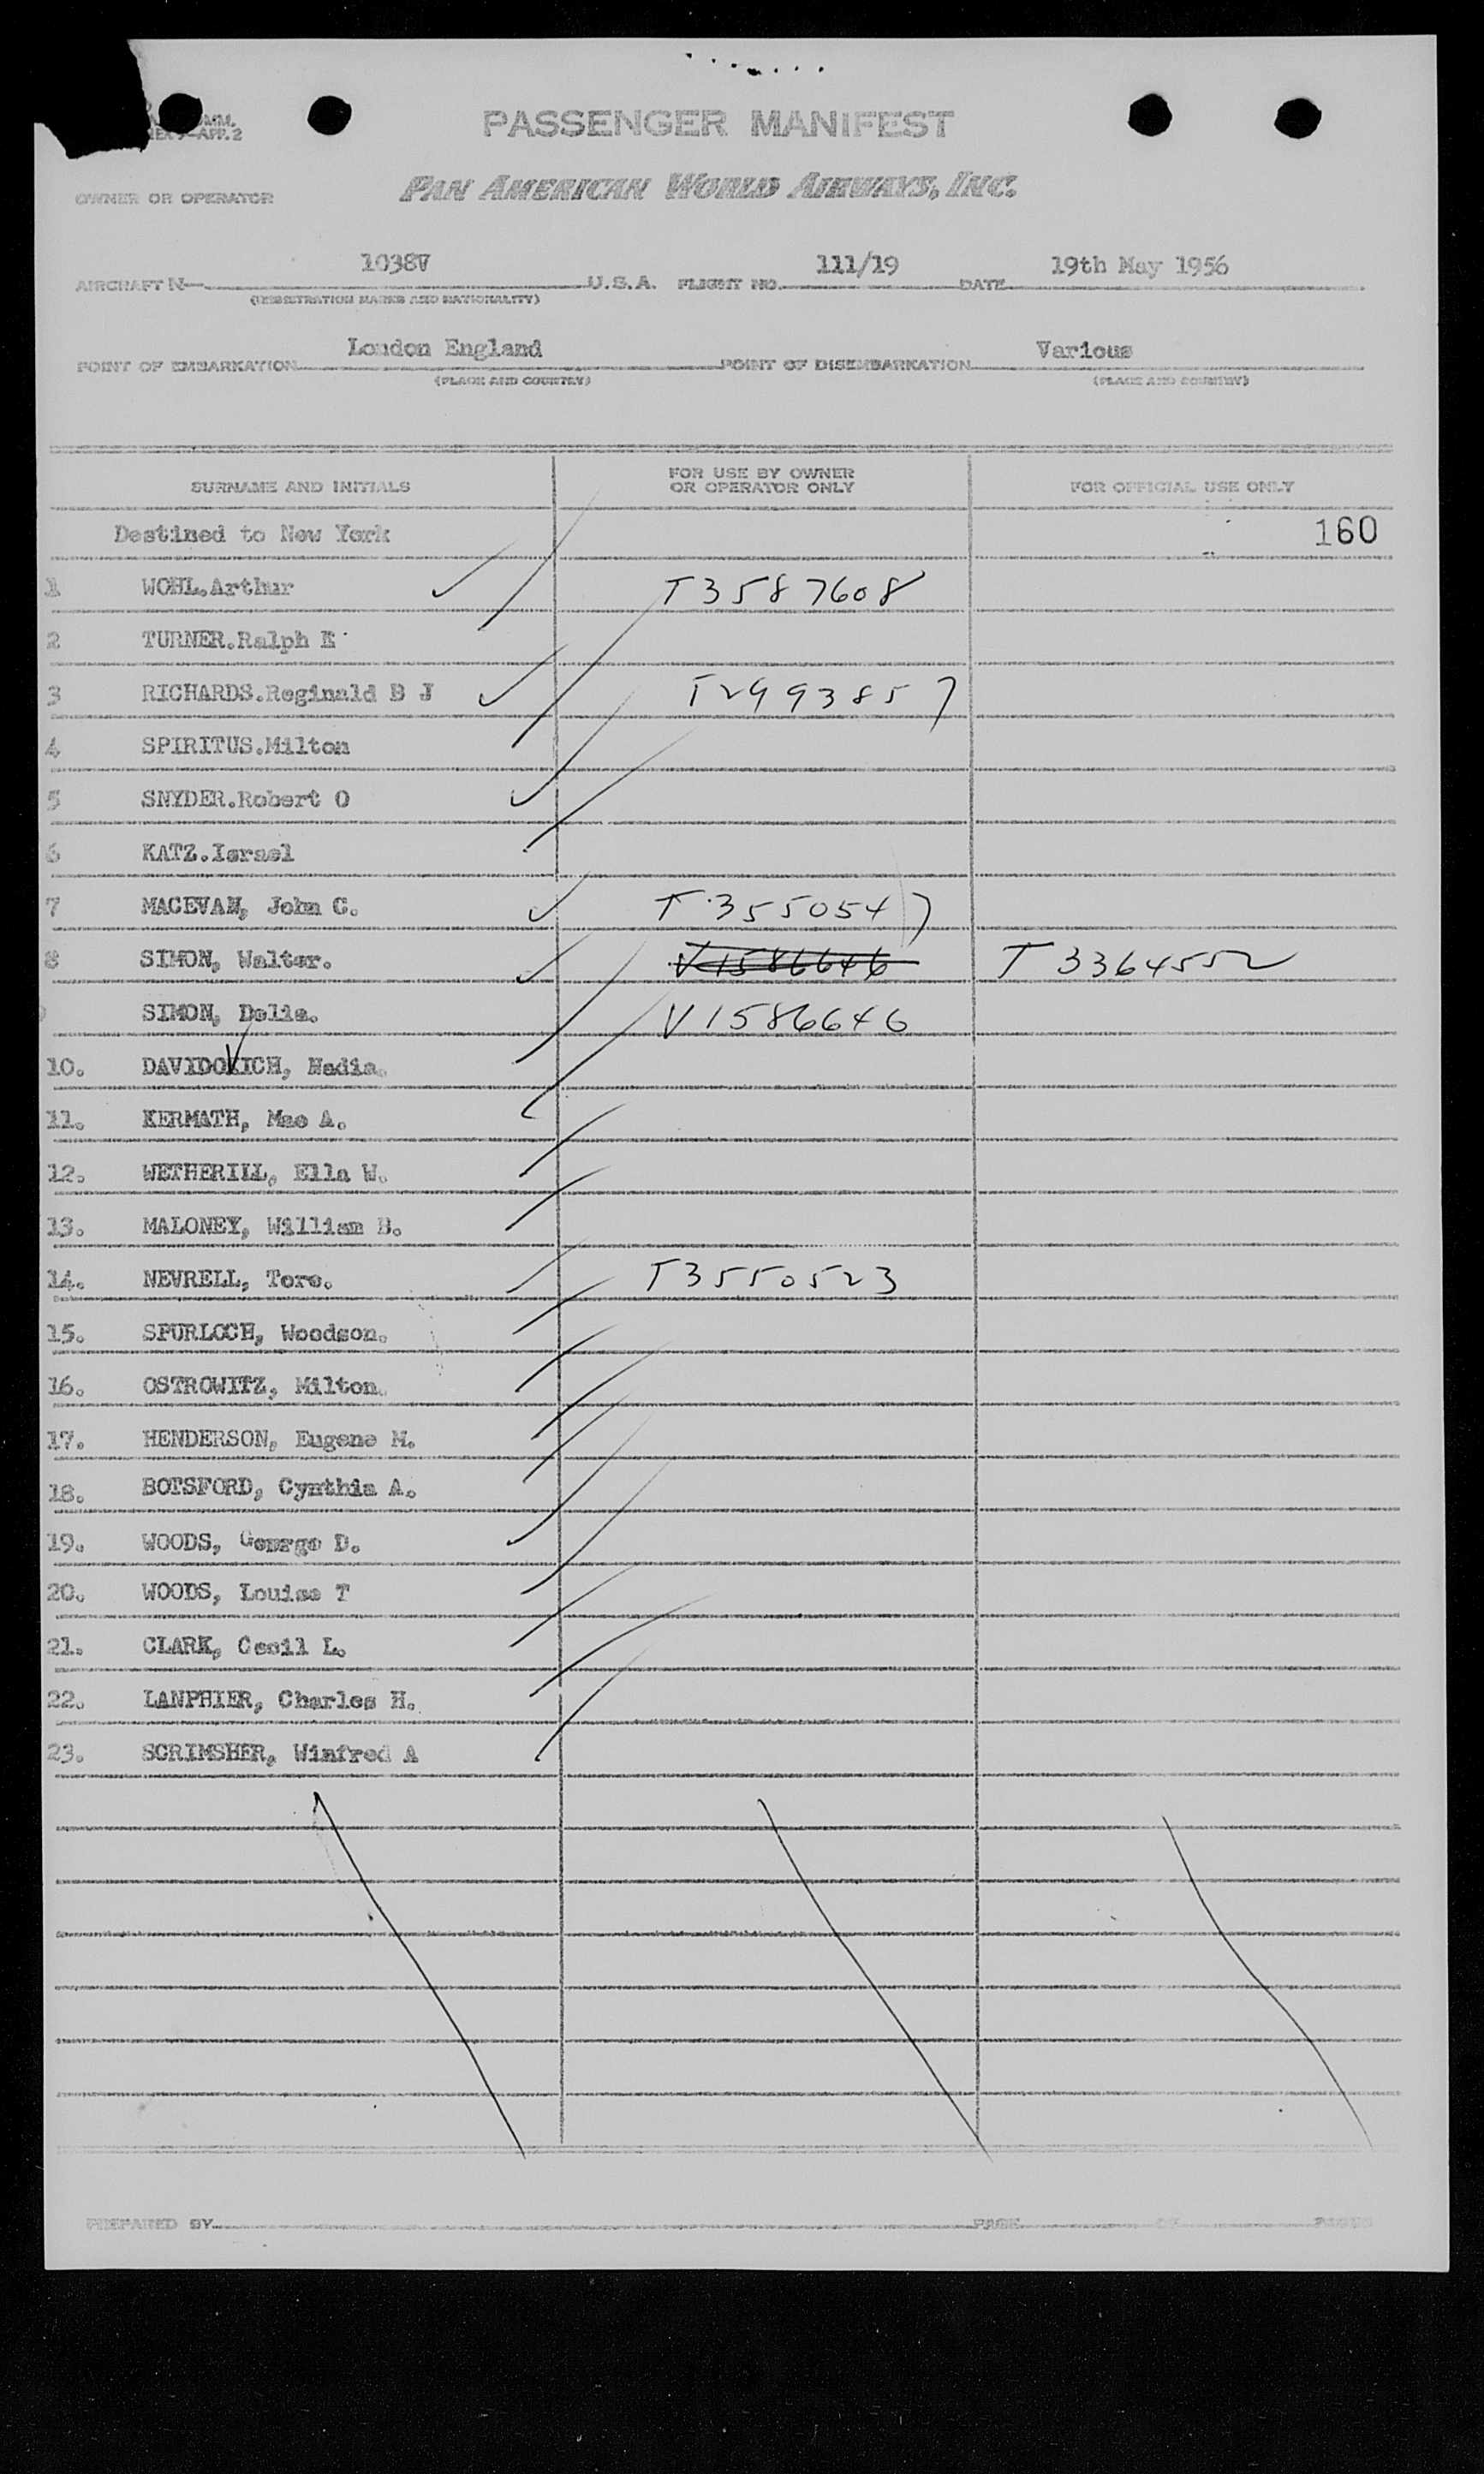 MM.
APP. 2
PASSENGER MANIFEST
OWNER OR OPERATOR PAN AMERICAN WORLD AIRWAYS, INC.
AIRCRAFT N 1038V U.S.A. FLIGHT NO. 111/19 DATE 19th May 1956
(REGISTRATION MARKS AND NATIONALITY)
POINT OF EMBARKATION London England POINT OF DISEMBARKATION Various
(PLACE AND COUNTRY) (PLACE AND COUNTRY)
SURNAME AND INITIALS FOR USE BY OWNER OR OPERATOR ONLY FOR OFFICIAL USE ONLY
Destined to New York 160
1 WOHL.Arthur T3587608
2 TURNER.Ralph E
3 RICHARDS.Reginald B J T2993857
4 SPIRITUS.Milton
5 SNYDER.Robert O
6 KATZ.Israel
7 MACEVAN, John C. T3550547
8 SIMON, Walter. V1586646 T3364552
SIMON, Dolia. V1586646
10. DAVIDOVICH, Nadia.
11. KERMATH, Mae A.
12. WETHERILL, Ella W.
13. MALONEY, William B.
14. NEVRELL, Tore. T3550523
15. SPURLOCH, Woodson.
16. OSTROWITZ, Milton.
17. HENDERSON, Eugene M.
18. BOTSFORD, Cynthia A.
19. WOODS, George D.
20. WOODS, Louise T
21. CLARK, Cecil L.
22. LANPHIER, Charles H.
23. SCRIMSHER, Winfred A
PREPARED BY PAGE OF PAGES